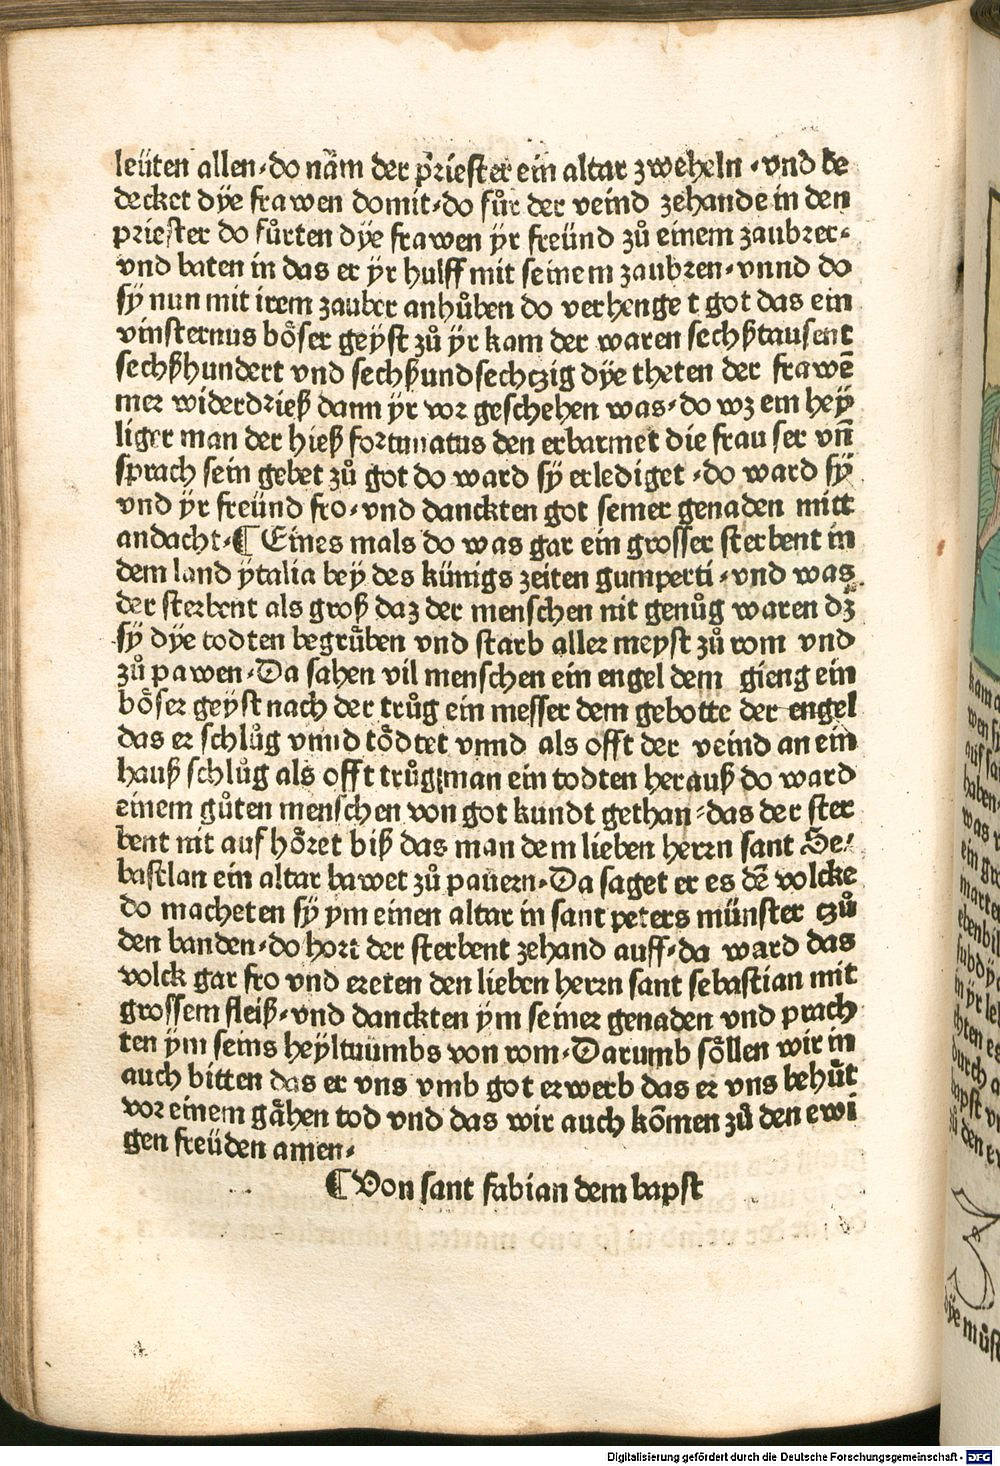 leüten allen·do nam̄ der priester ein altar zweheln ·vnd be
decket dÿe frawen domit·do fůr der veind zehande in den
priester do fůrten dÿe frawen ÿr freünd zů einem zaubrer·
vnd baten in das er ÿr hulff mit seinem zaubren·vnnd do
sÿ nun mit irem zauber anhůben do verhenget got das ein
vinsternus böser geÿst zů ÿr kam der waren sechßtausent
sechßhundert vnd sechßundsechczig dÿe theten der frawē
mer widerdrieß dann ÿr vor geschehen was·do wz ein heÿ
liger man der hieß fortunatus den erbarmet die frau ser vn̄
sprach sein gebet zů got do ward sÿ erlediget ·do ward sÿ
vnd ÿr freünd fro·vnd danckten got seiner genaden mitt
andacht·¶ Eines mals do was gar ein grosser sterbent in
dem land ÿtalia beÿ des künigs zeiten gumperti·vnd was
der sterbent als groß daz der menschen nit genůg waren dz
sÿ dÿe todten begrůben vnd starb aller meÿst zů rom vnd
zů pawen·Da sahen vil menschen ein engel dem gieng ein
böser geÿst nach der trůg ein messer dem gebotte der engel
das er schlůg vnnd tödtet vnnd als offt der veind an ein
hauß schlůg als offt trůg man ein todten herauß do ward
einem gůten menschen von got kundt gethan·das der ster
bent nit auf höret biß das man dem lieben herrn sant Se/
bastian ein altar bawet zů pauern·Da saget er es dē volcke
do macheten sÿ ym einen altar in sant peters münster czů
den banden·do hort der sterbent zehand auff·da ward das
volck gar fro vnd ereten den lieben herrn sant sebastian mit
grossem fleiß·vnd danckten ÿm seiner genaden vnd prach
ten ÿm seins heÿltuumbs von rom·Darumb söllen wir in
auch bitten das er vns vmb got erwerb das er vns behůt
vor einem gähen tod vnd das wir auch kōmen zů den ewi
gen freüden amen·
¶ Von sant fabian dem bapst
Digitalisierung gefördert durch die Deutsche Forschungsgemeinschaft - DFG